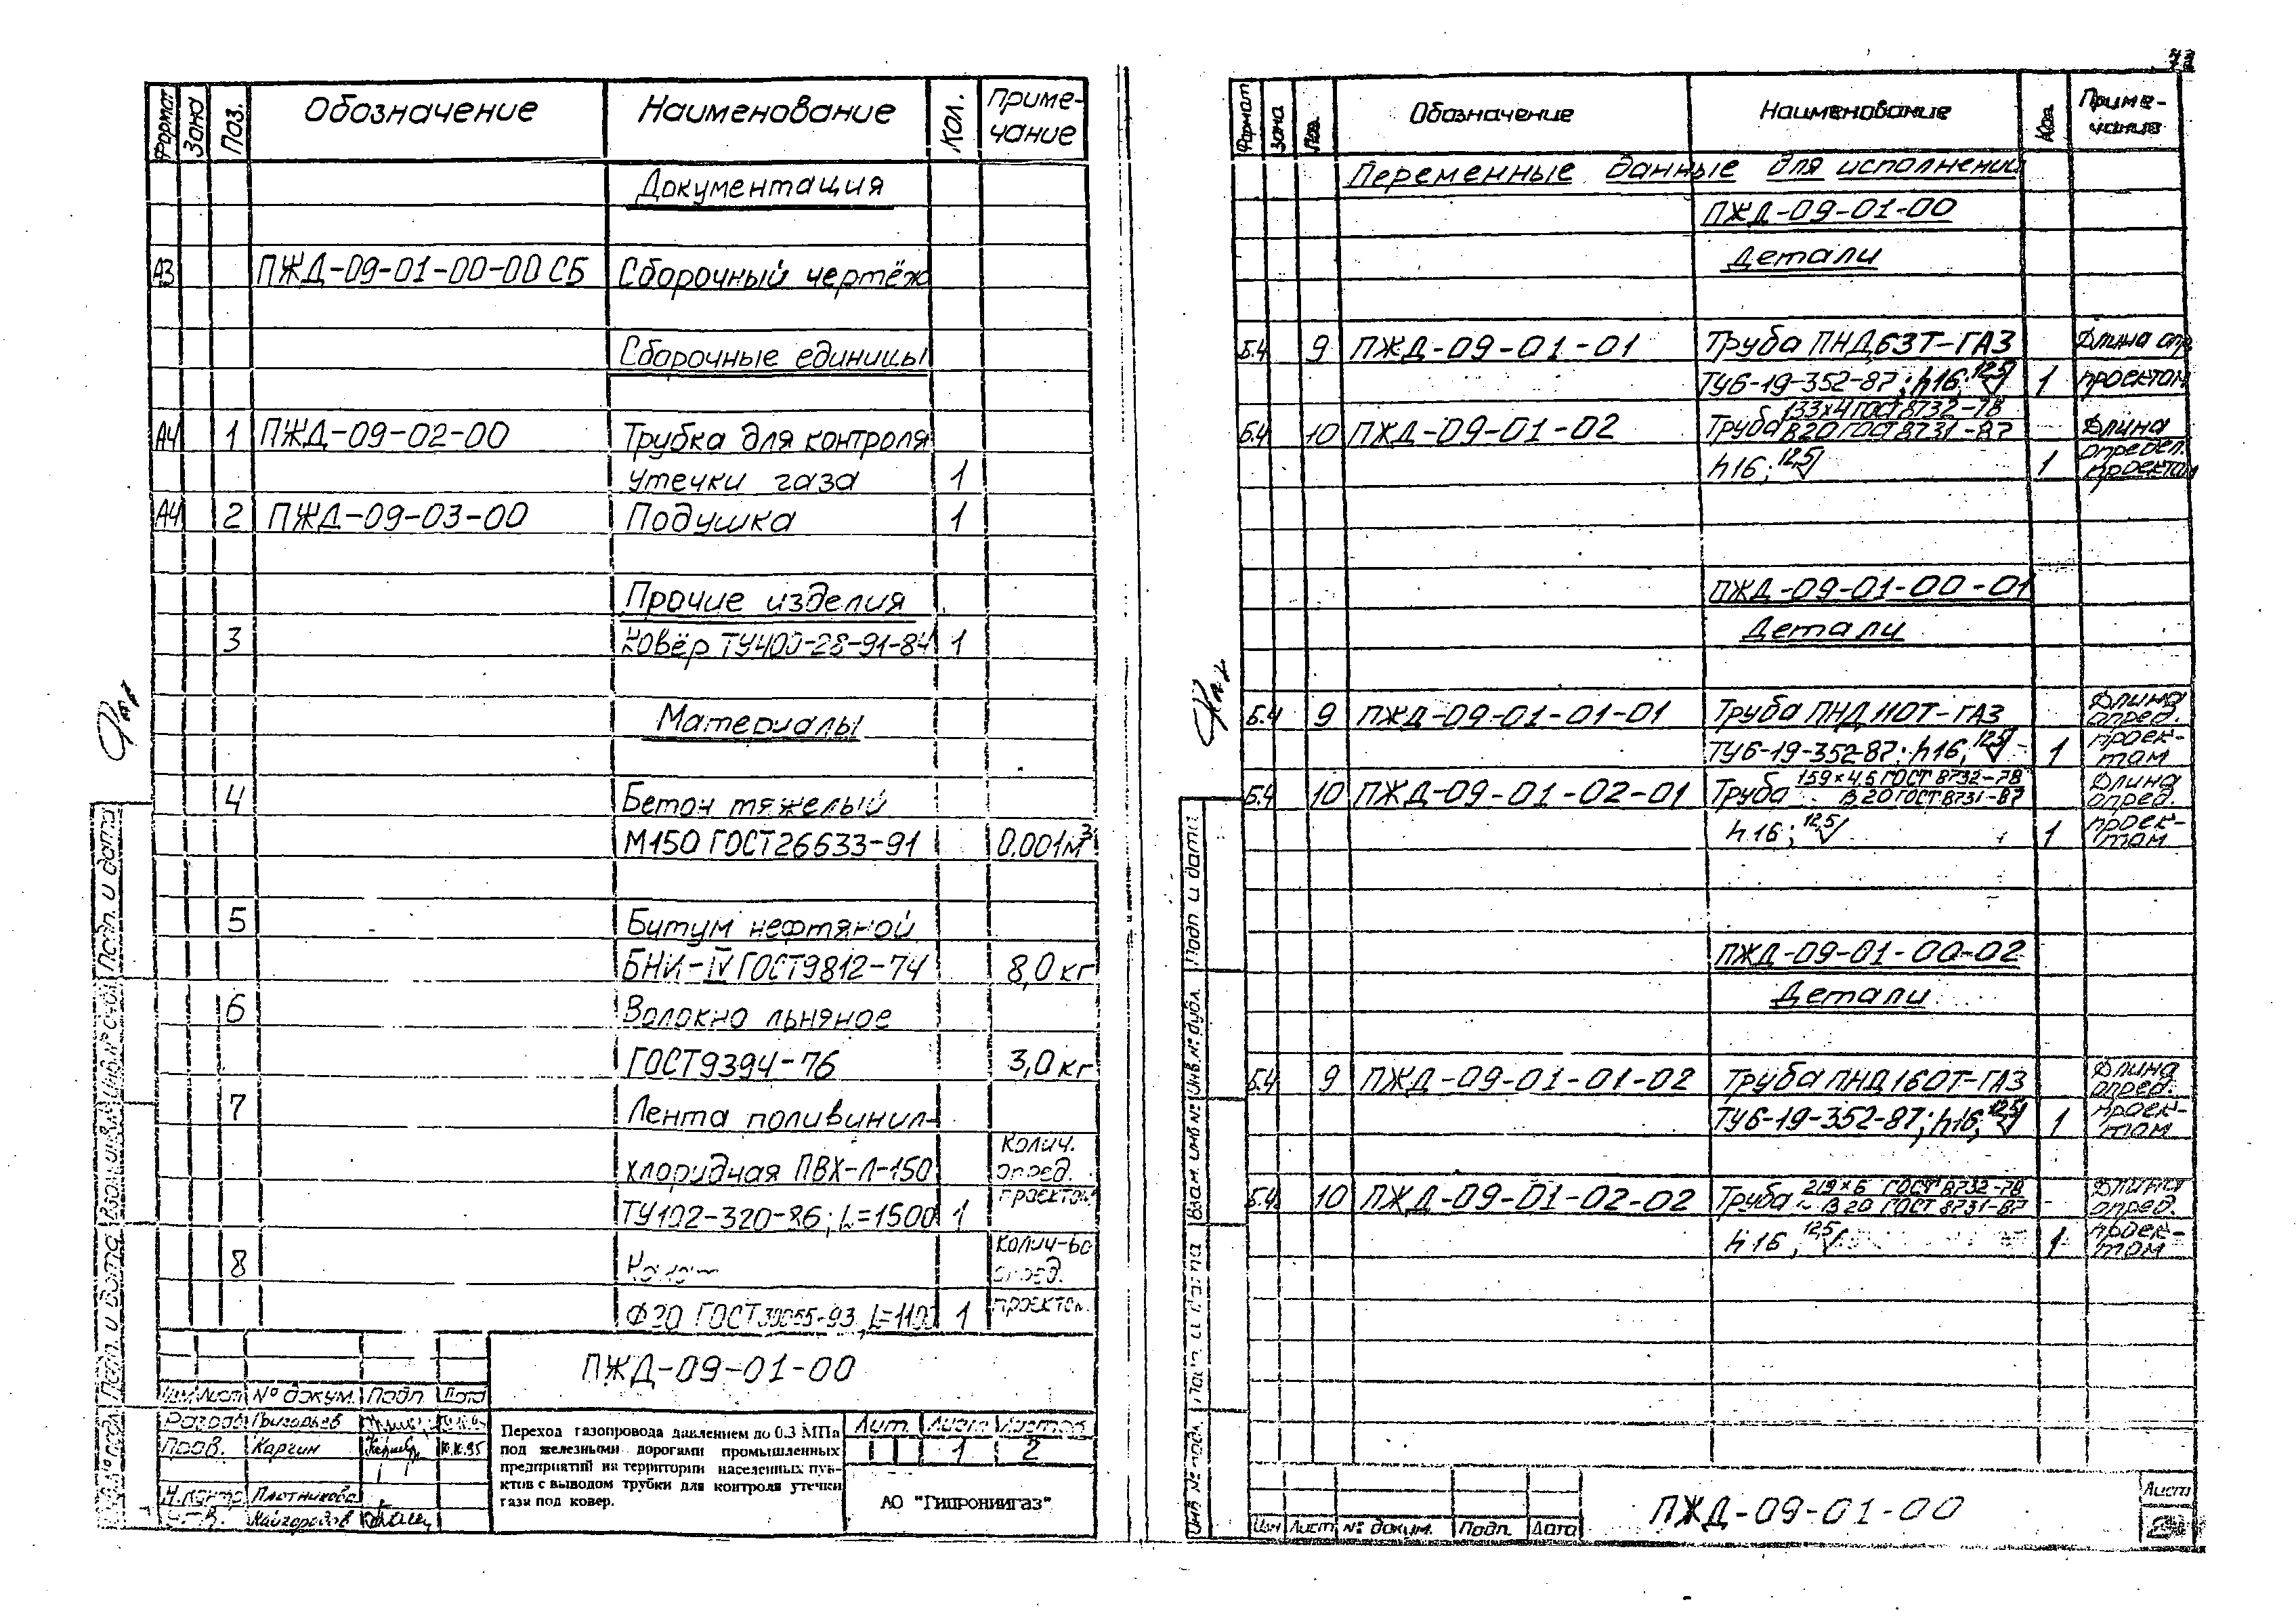 Формат Зона Поз. Обозначение Наименование Кол. Приме-
чание
Документация
А3 ПЖД-09-01-00-00 СБ Сборочный чертёж
Сборочные единицы
А4 1 ПЖД-09-02-00 Трубка для контроля
утечки газа 1
А4 2 ПЖД-09-03-00 Подушка 1
Прочие изделия
3 Ковёр ТУ400-28-91-84 1
Материалы
4 Бетон тяжелый
М150 ГОСТ26633-91 0.001м³
5 Битум нефтяной
БНИ-IV ГОСТ9812-74 8,0 кг
6 Волокно льняное
ГОСТ9394-76 3,0 кг
7 Лента поливинил-
хлоридная ПВХ-Л-150 Колич.
опред.
ТУ102-320-86; L=1500 1 проектом
8 Канат Колич-во
опред.
Ф20 ГОСТ30055-93, L=1100 1 проектом
ПЖД-09-01-00
Изм Лист № докум. Подп Дата
Разраб Григорьев
Пров. Каргин 10.10.95
Н.контр Плотникова
Утв. Майгородов
Переход газопровода давлением до 0.3 МПа
под железными дорогами промышленных
предприятий на территории населенных пун-
ктов с выводом трубки для контроля утечки
газа под ковер.
Лит. Лист Листов
1 2
АО "Гипрониигаз"
Инв.№ подл Подп. и дата Взам.инв.№ Инв.№ дубл Подп. и дата
73
Формат Зона Поз. Обозначение Наименование Кол. Приме-
чание
Переменные данные для исполнений
ПЖД-09-01-00
Детали
Б.4 9 ПЖД-09-01-01 Труба ПНД63Т-ГАЗ Длина опр
ТУ6-19-352-87; h16; 12,5√ 1 проектом
133×4 ГОСТ 8732-78
Б.4 10 ПЖД-09-01-02 Труба В20 ГОСТ 8731-87 Длина
h16; 12,5√ 1 определ.
проектом
ПЖД-09-01-00-01
Детали
Б.4 9 ПЖД-09-01-01-01 Труба ПНД110Т-ГАЗ Длина
опред.
ТУ6-19-352-87; h16; 12,5√ 1 проек-
том
159×4.5 ГОСТ 8732-78
Б.4 10 ПЖД-09-01-02-01 Труба В20 ГОСТ 8731-87 Длина
опред.
h16; 12,5√ 1 проек-
том
ПЖД-09-01-00-02
Детали
Б.4 9 ПЖД-09-01-01-02 Труба ПНД160Т-ГАЗ Длина
опред.
ТУ6-19-352-87; h16; 12,5√ 1 проек-
том
219×6 ГОСТ 8732-78
Б.4 10 ПЖД-09-01-02-02 Труба В20 ГОСТ 8731-87 Длина
опред.
h16; 12,5√ 1 проек-
том
Изм Лист № докум. Подп. Дата
ПЖД-09-01-00
Лист
2
Инв № подл. Подп. и дата Взам.инв№ Инв.№ дубл. Подп и дата